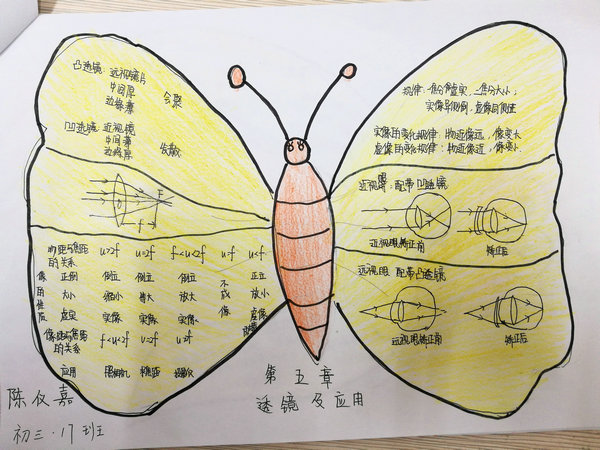 凸透镜：远视镜片
中间厚
边缘薄
会聚
凹透镜：近视镜
中间薄
边缘厚
发散
F
f
物距与焦距的关系 u>2f u=2f f<u<2f u=f u<f
像的性质
正倒 倒立 倒立 倒立 不成像 正立
大小 缩小 放大
虚实 实像 实像 实像 虚像
像距与焦距的关系 f<u<2f v=2f
应用 照相机
规律：一倍分虚实，二倍分大小，
实像异侧倒，虚像同侧正
实像的变化规律：物近像远，像变大
虚像的变化规律：物近像近，像变小
近视眼：配带凹透镜
近视眼矫正前 矫正后
远视眼 配带凸透镜
远视眼矫正前 矫正后
第五章
透镜及应用
陈仪嘉
初三·17班